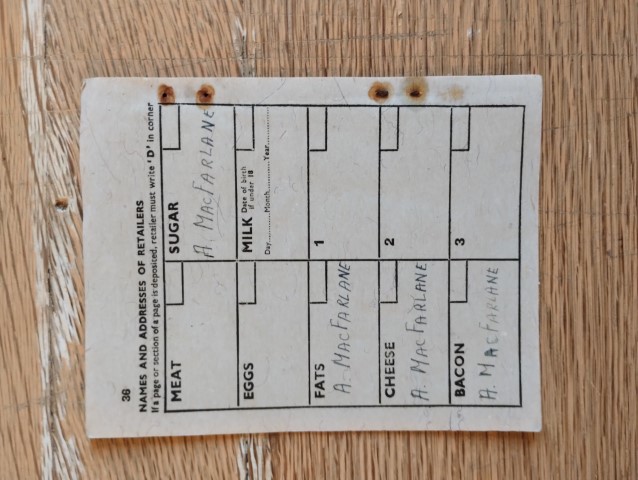 36
NAMES AND ADDRESSES OF RETAILERS
If a page or section of a page is deposited, retailer must write 'D' in corner
MEAT
SUGAR
A. MACFARLANE
EGGS
MILK Date of birth if under 18
Day..........Month............Year...............
FATS
A. MACFARLANE
1
CHEESE
A. MACFARLANE
2
BACON
A. MACFARLANE
3